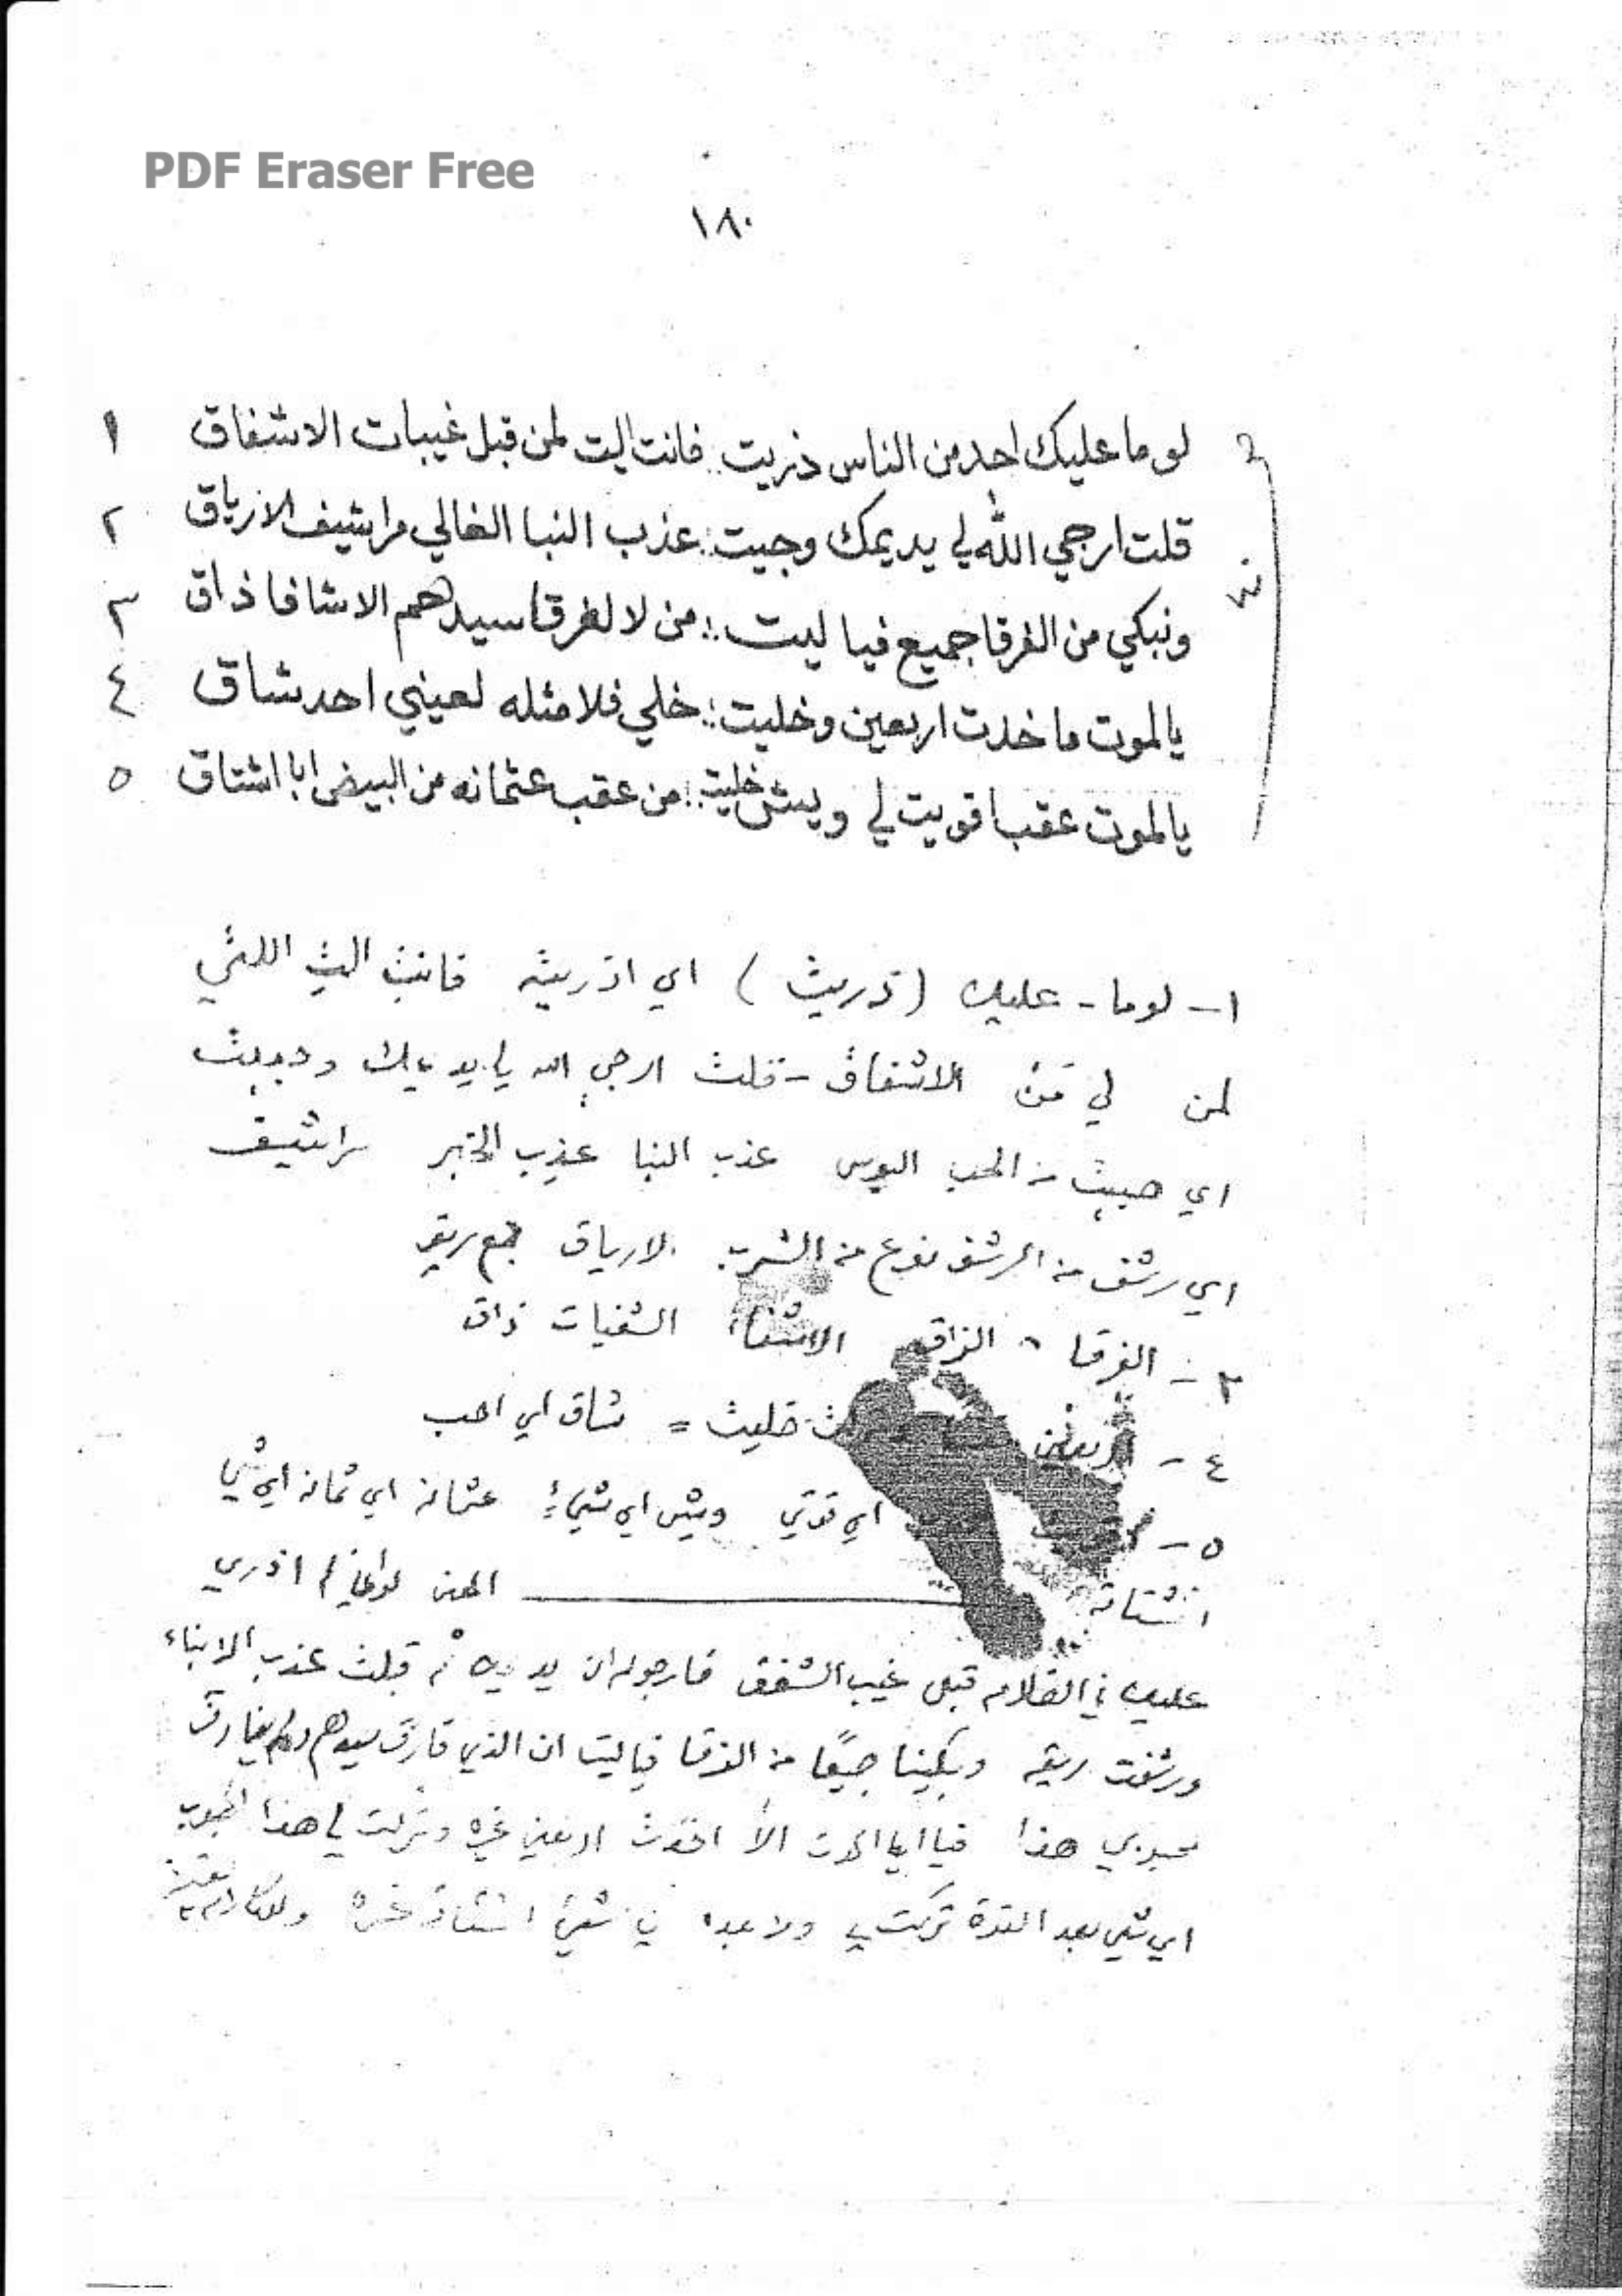 PDF Eraser Free
١٨٠
لو ما عليك احد من الناس ذريت :: فانت اليت لمن قبل غيبات الاشفاق ١
قلت ارجي الله لي يديمك وجيت :: عذب النبا الغالي مراشيف الارياق ٢
ونبكي من الفرقا جميع فيا ليت :: من لا لفرقا سيدهم الاشافا ذاق ٣
يالموت ما خذت اربعين وخليت :: خلي فلا مثله لعيني احد شاق ٤
يالموت عقب اقويت لي ويش خليت :: من عقب عثمانه من البيض ابا اشتاق ٥
١- لوما - عليك (ذريت) اي اذريته فانت اليت اللتي
لمن لي من الاشفاق - قلت ارجي الله لي يديمك وجيت
اي حبيت من الحب البوس عذب النبا عذب الخبر مراشيف
اي رشف من الرشف نوع من الشرب الارياق جمع ريق
٣ - الفرقا الاشفا الشفيات ذاق
٤ - اربعين خليت = شاق اي احب
٥ - اي قوتي ويش اي شيء عثمانه اي
اشتاق المعنى اذري
عليك في الظلام قبل غيب الشفق فارجو له ان قبلت عذب الانباء
ورشفت ريقه وبكينا جميعًا من الفرقا فياليت ان الذي فارق سيدهم
محبوبي هذا فيا ايها الموت الا اخذت اربعين غيره وتركت لي هذا المحبوب
اي شي بعد القوة تركت لي ولا بعده في شي اشتاق غيره